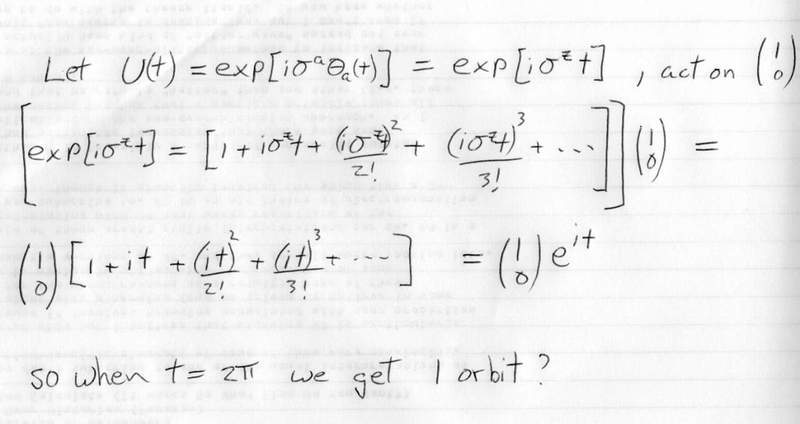 Let U(t) = exp[iσᵃθₐ(t)] = exp[iσᶻt] , act on (1 0)
[exp[iσᶻt] = [1 + iσᶻt + (iσᶻt)²/2! + (iσᶻt)³/3! + ...]] (1 0) =
(1 0) [1 + it + (it)²/2! + (it)³/3! + ...] = (1 0) eⁱᵗ
so when t = 2π we get 1 orbit?